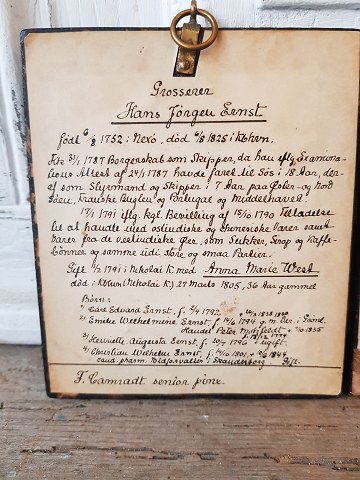 Grosserer
Hans Jörgen Ernst
född 6/8 1752 i Nexö, död 6/8 1825 i Kbhvn.
Fik 31/1 1787 Borgerskab som Skipper, da han iflg. Examina-
tions Attest af 24/1 1787 havde faret til Søs i 18 Aar, der-
af som Styrmand og Skipper i 7 Aar paa Øster- og Nord
Søen, Franske Bugten og Portugal og Middelhavet.
17/1 1791 iflg. kgl. Bevilling af 15/10 1790 Tilladelse
til at handle med ostindiske og chinesiske Varer samt
Varer fra de vestindiske Øer, som Sukker, Sirop og Kaffe-
bönner og samme udi store og smaa Partier.
Gift 1791 i Nikolai K. med Anna Marie West
död i Kbhvn (Nikolai K.) 27 Marts 1805, 36 Aar gammel
Börn:
1/ Carl Edvard Ernst f. 5/4 1792
2/ Emilie Wilhelmine Ernst, f. 14/6 1794 g. m. Urt. i Grönd.
Handel Peter 1855
3/ Henriette Augusta Ernst f. 20/7 1796 + ugift.
4/ Christian Wilhelm Ernst, f. 1801 + 1844
cand. pharm. i Skanderborg Gift.
F. Camradt senior pinx.